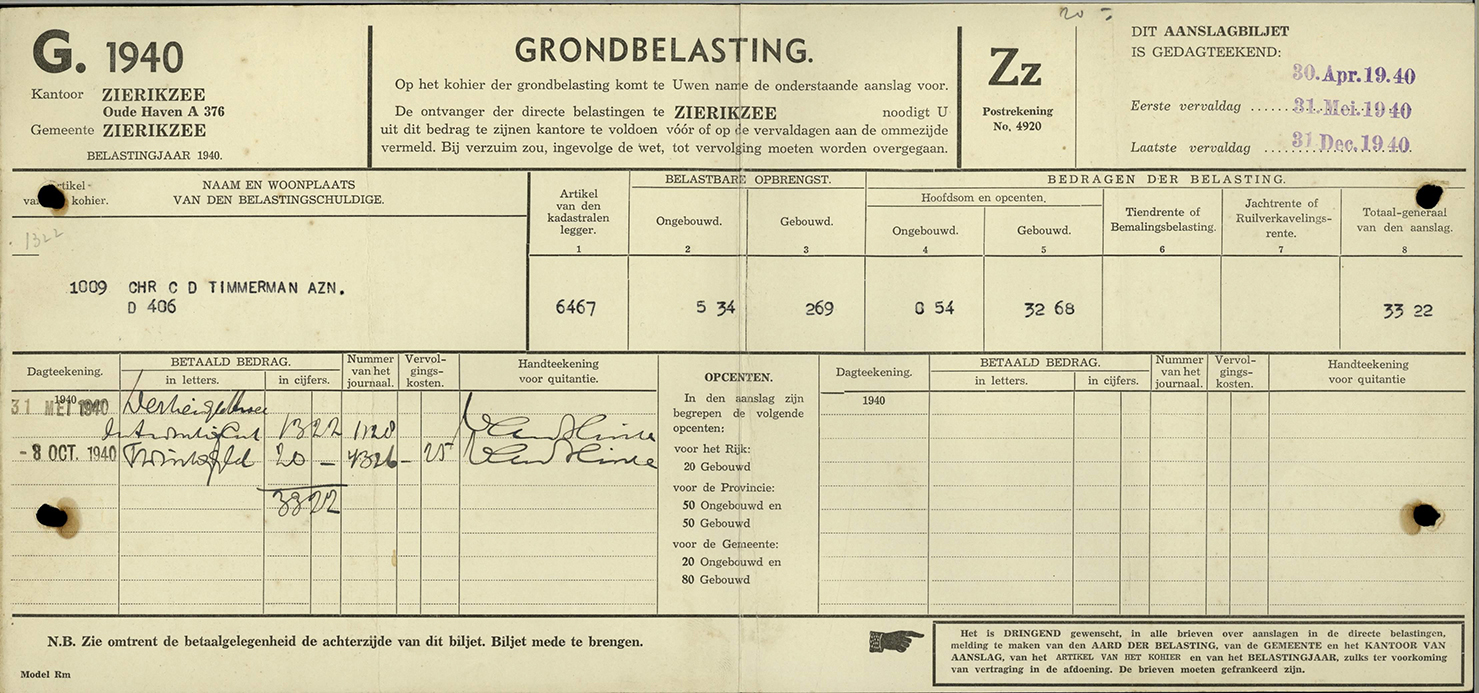 20 -
G. 1940
Kantoor ZIERIKZEE
Oude Haven A 376
Gemeente ZIERIKZEE
BELASTINGJAAR 1940.
GRONDBELASTING.
Op het kohier der grondbelasting komt te Uwen name de onderstaande aanslag voor.
De ontvanger der directe belastingen te ZIERIKZEE noodigt U
uit dit bedrag te zijnen kantore te voldoen vóór of op de vervaldagen aan de ommezijde
vermeld. Bij verzuim zou, ingevolge de wet, tot vervolging moeten worden overgegaan.
Zz
Postrekening
No. 4920
DIT AANSLAGBILJET
IS GEDAGTEEKEND:
30. Apr. 19.40
Eerste vervaldag ...... 31. Mei. 19 40
Laatste vervaldag ...... 31 Dec. 19 40
kohier.
NAAM EN WOONPLAATS
VAN DEN BELASTINGSCHULDIGE.
Artikel
van den
kadastralen
legger.
1
BELASTBARE OPBRENGST.
Ongebouwd.
2
Gebouwd.
3
BEDRAGEN DER BELASTING.
Hoofdsom en opcenten.
Ongebouwd.
4
Gebouwd.
5
Tiendrente of
Bemalingsbelasting.
6
Jachtrente of
Ruilverkavelings-
rente.
7
Totaal-generaal
van den aanslag.
8
1322
1009 CHR C D TIMMERMAN AZN.
D 406
6467 5 34 269 0 54 32 68 33 22
Dagteekening.
BETAALD BEDRAG.
in letters. in cijfers.
Nummer
van het
journaal.
Vervol-
gings-
kosten.
Handteekening
voor quitantie.
1940
31 MEI 1940
1322 1128
- 8 OCT. 1940 Twintig gld 20 - 4326 - 25
3322
OPCENTEN.
In den aanslag zijn
begrepen de volgende
opcenten:
voor het Rijk:
20 Gebouwd
voor de Provincie:
50 Ongebouwd en
50 Gebouwd
voor de Gemeente:
20 Ongebouwd en
80 Gebouwd
Dagteekening.
BETAALD BEDRAG.
in letters. in cijfers.
Nummer
van het
journaal.
Vervol-
gings-
kosten.
Handteekening
voor quitantie
1940
N.B. Zie omtrent de betaalgelegenheid de achterzijde van dit biljet. Biljet mede te brengen.
Model Rm
Het is DRINGEND gewenscht, in alle brieven over aanslagen in de directe belastingen,
melding te maken van den AARD DER BELASTING, van de GEMEENTE en het KANTOOR VAN
AANSLAG, van het ARTIKEL VAN HET KOHIER en van het BELASTINGJAAR, zulks ter voorkoming
van vertraging in de afdoening. De brieven moeten gefrankeerd zijn.